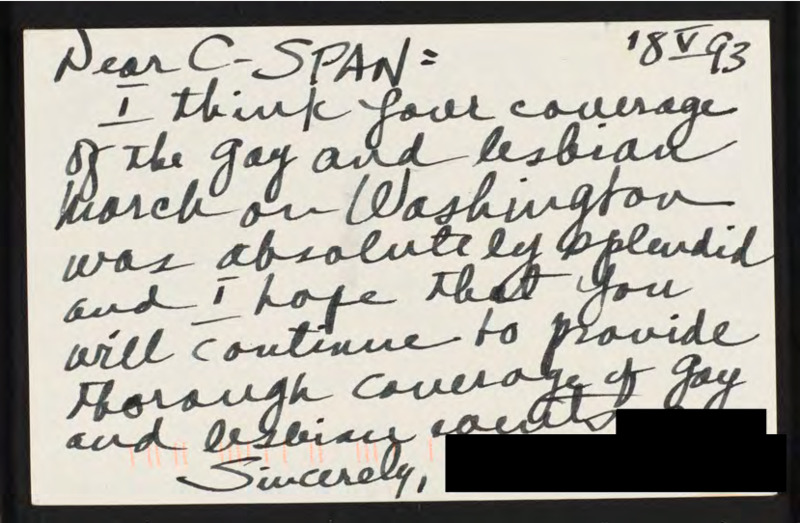 18 V 93
Dear C-SPAN:
I think your coverage
of the gay and lesbian
march on Washington
was absolutely splendid
and I hope that you
will continue to provide
thorough coverage of gay
and lesbian events
Sincerely,